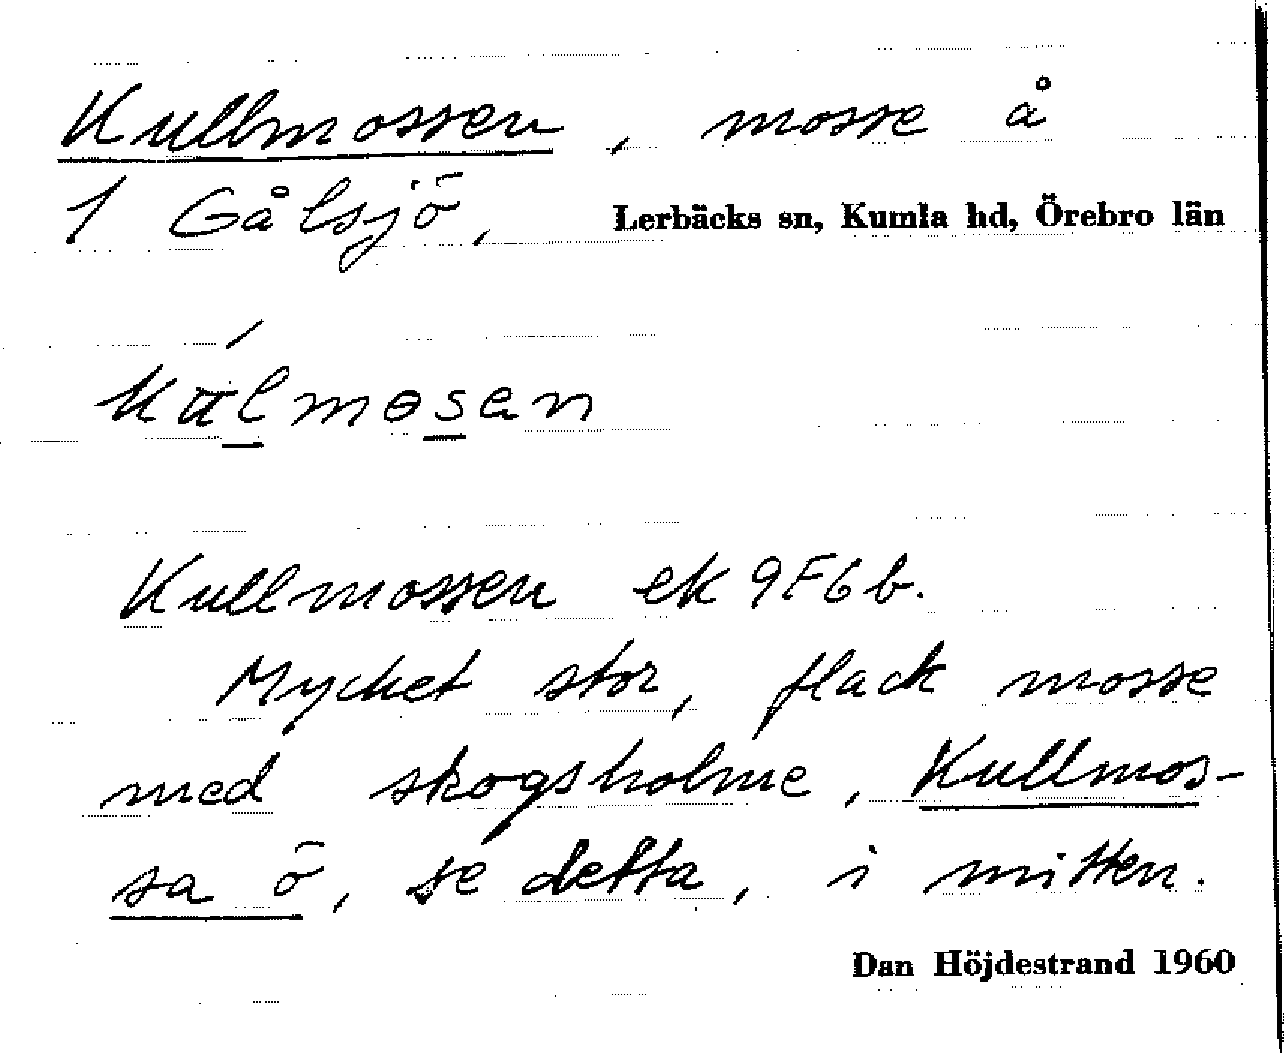 Kullmossen, mosse å
1 Gålsjö, Lerbäcks sn, Kumla hd, Örebro län
Kullmossen ek 9F6b.
Mycket stor, flack mosse
med skogsholme, Kullmos-
sa ö, se detta, i mitten.
Dan Höjdestrand 1960